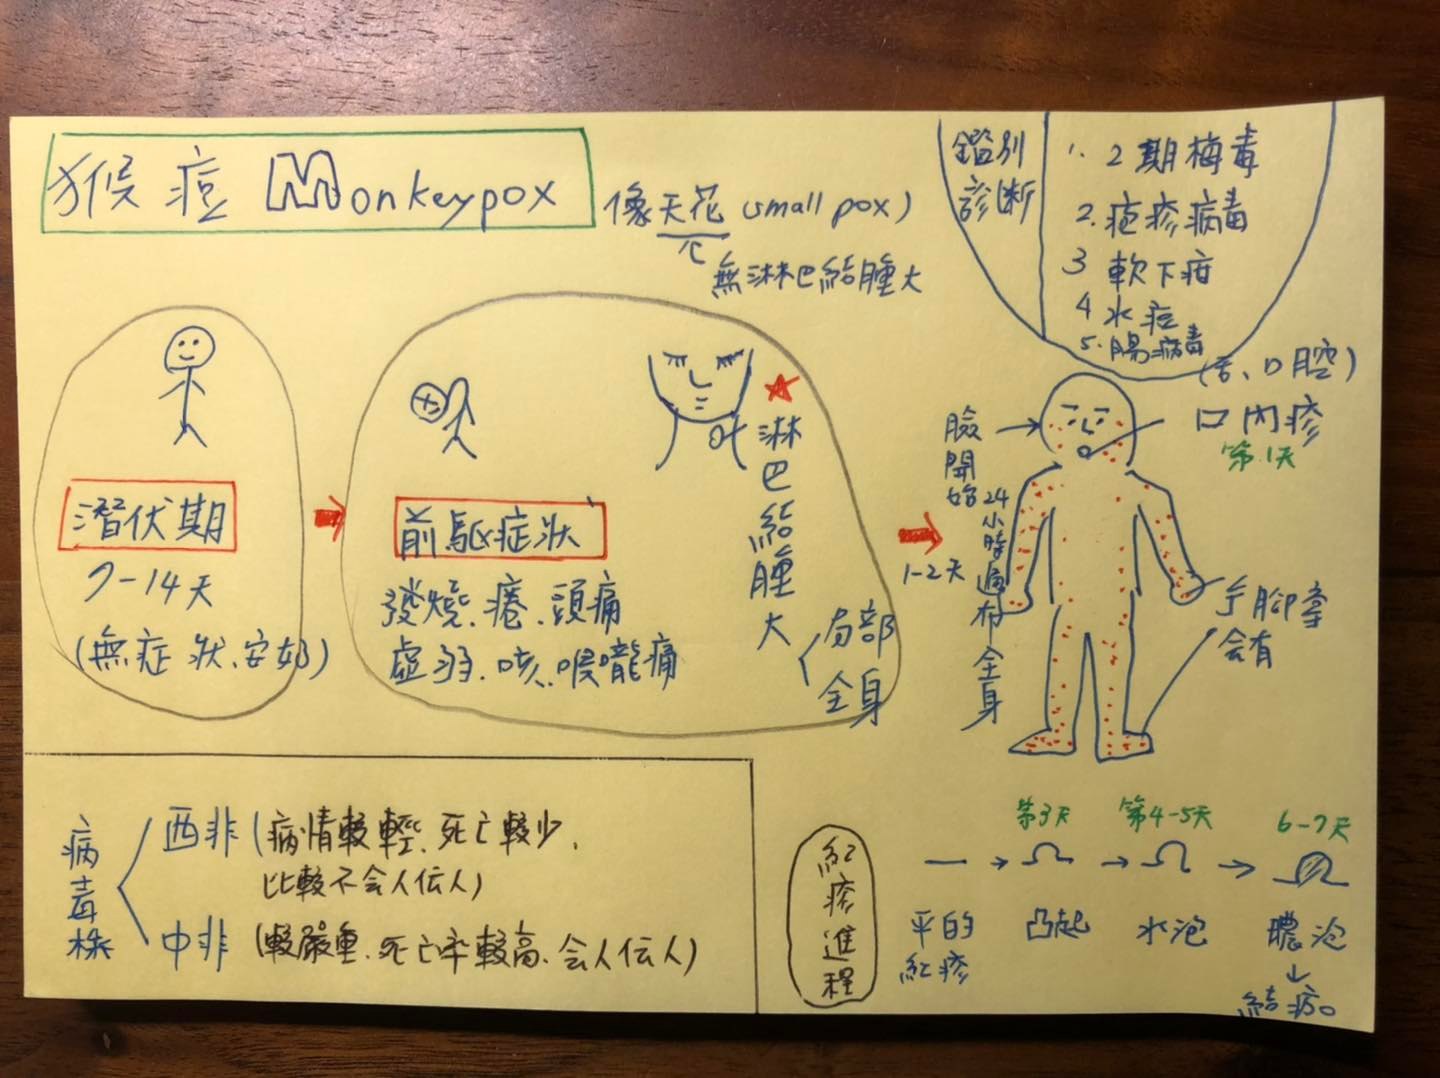 猴痘 Monkeypox
像天花 (small pox)
無淋巴結腫大
鑑別
診斷
1. 2期梅毒
2. 疱疹病毒
3 軟下疳
4 水痘
5. 腸病毒
潛伏期
7-14天
(無症狀、安好)
前驅症狀
發燒、痠、頭痛
虛弱、咳、喉嚨痛
淋巴結腫大
局部
全身
1-2天
臉開始
24小時遍布全身
(舌、口腔)
口內疹
第1天
手腳掌
会有
病毒株
西非 (病情較輕、死亡較少、
比較不会人伝人)
中非 (較嚴重、死亡率較高、会人伝人)
紅疹進程
第3天
第4-5天
6-7天
平的
紅疹
凸起
水泡
膿泡
結痂